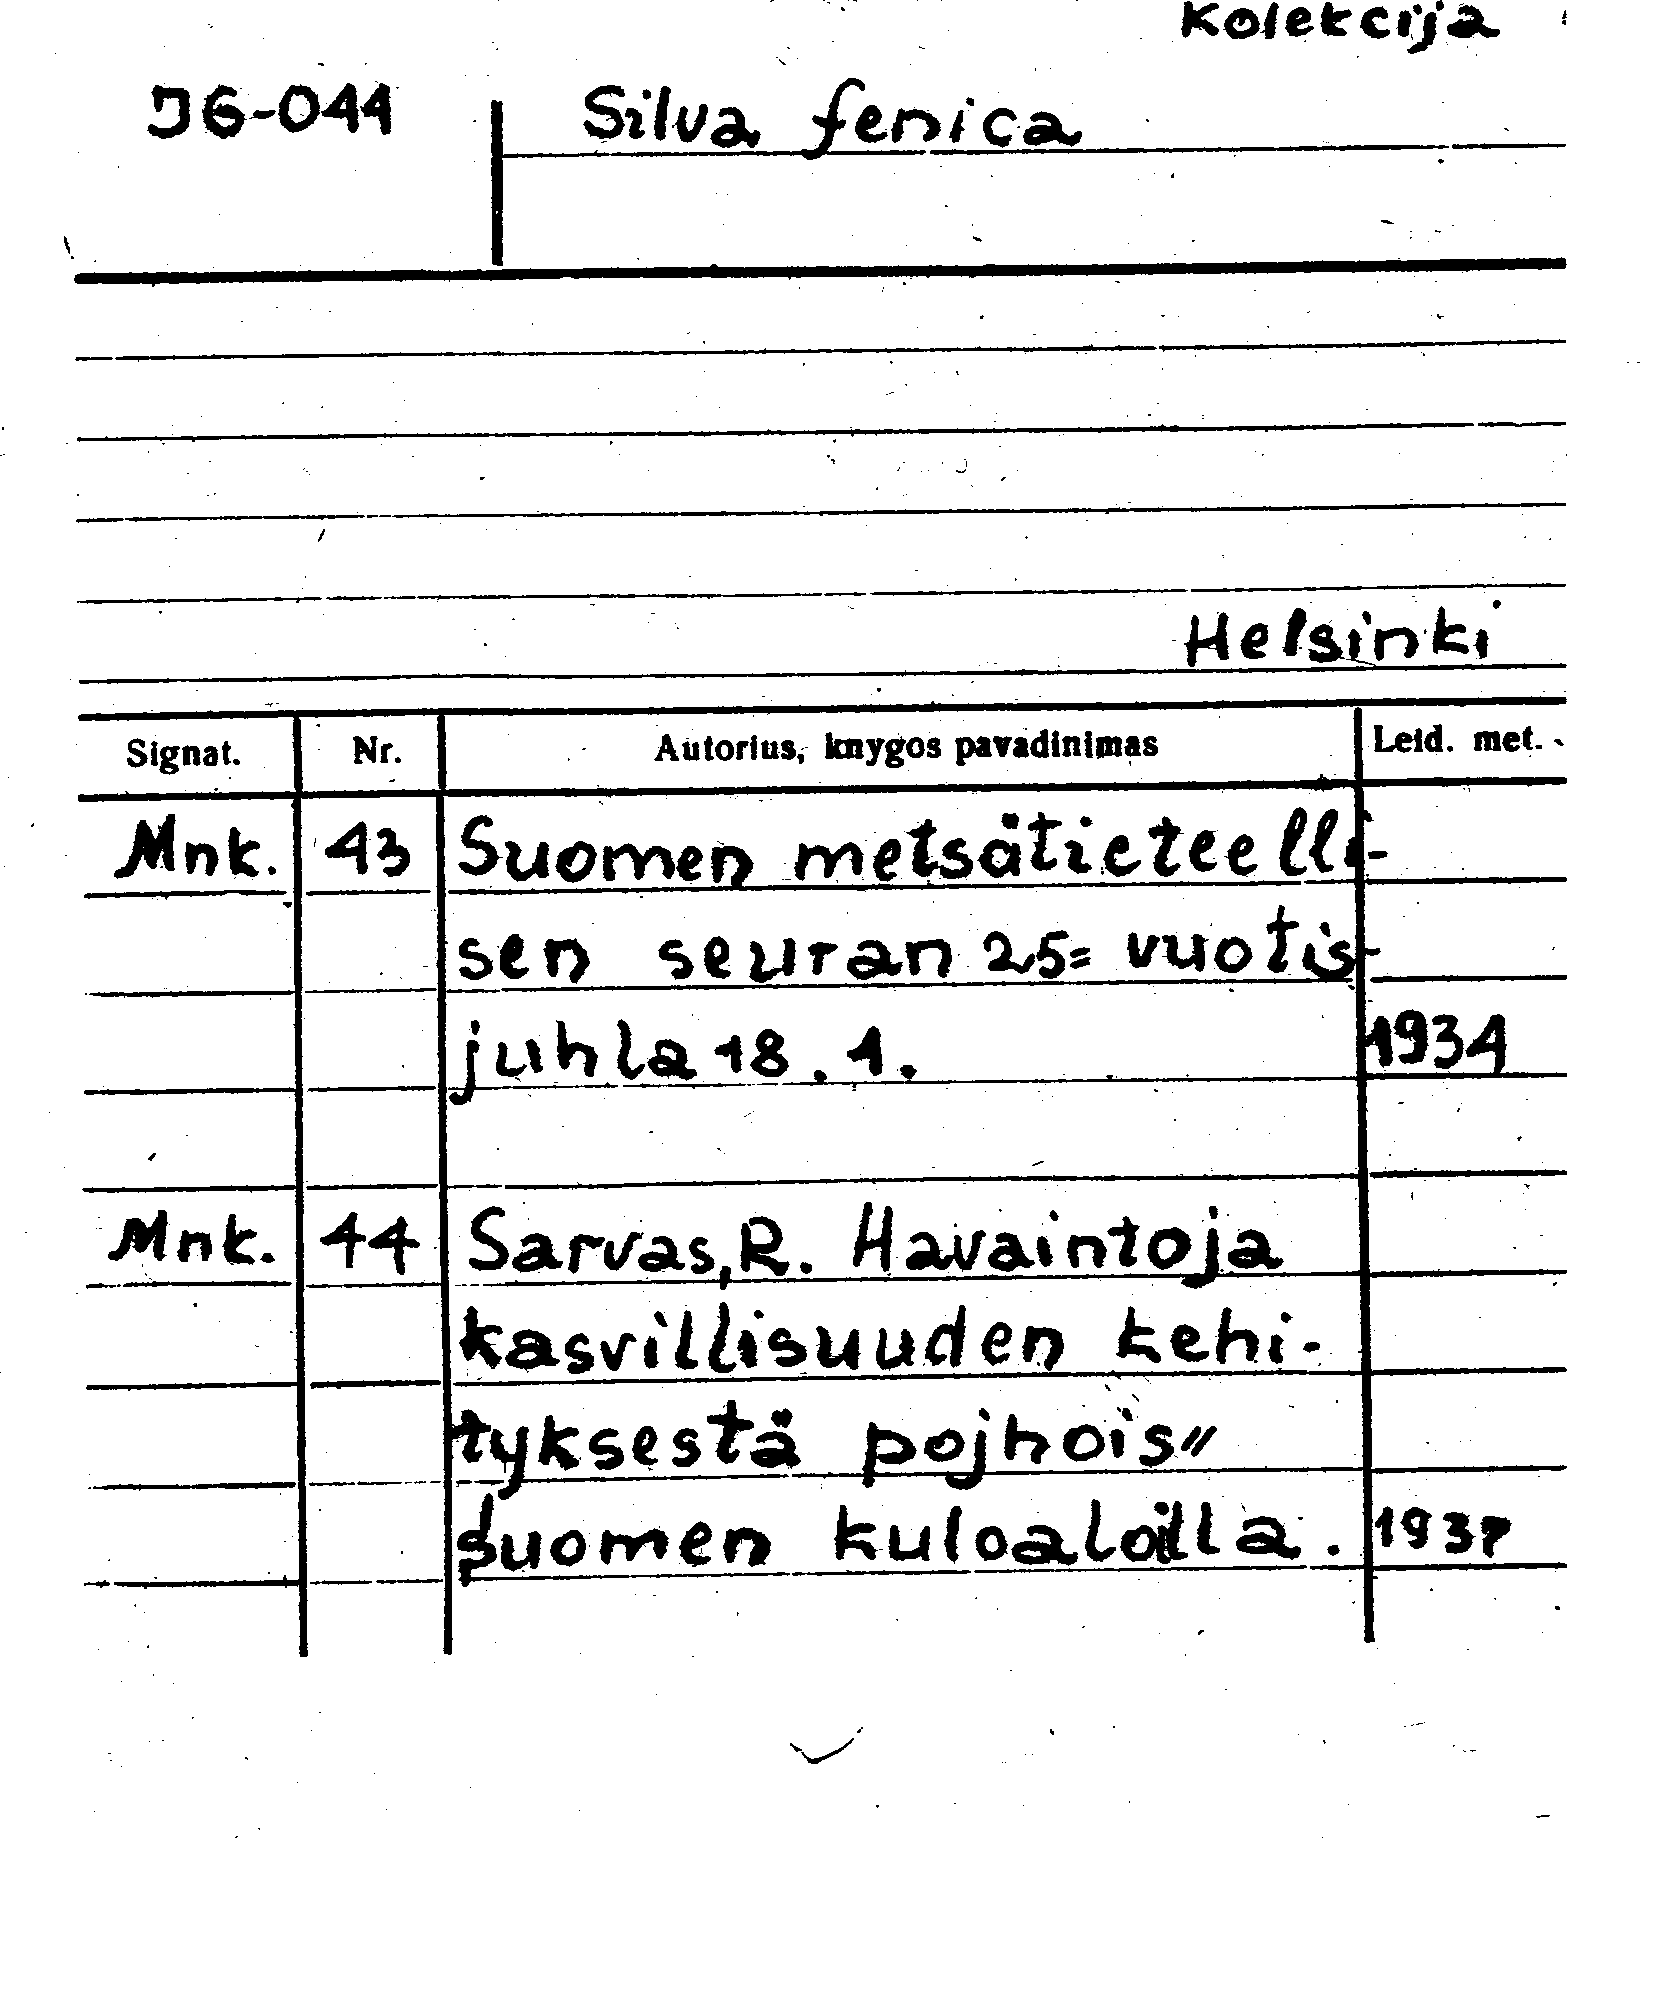 Kolekcija
J6-041 Silva fenica
Helsinki
Signat. Nr. Autorius, knygos pavadinimas Leid. met.
Mnk. 43 Suomen metsätieteelli-
sen seuran 25= vuotis-
juhla 18. 1. 1934
Mnk. 44 Sarvas, R. Havaintoja
kasvillisuuden kehi-
tyksestä pojhois"
suomen kuloaloilla. 1937